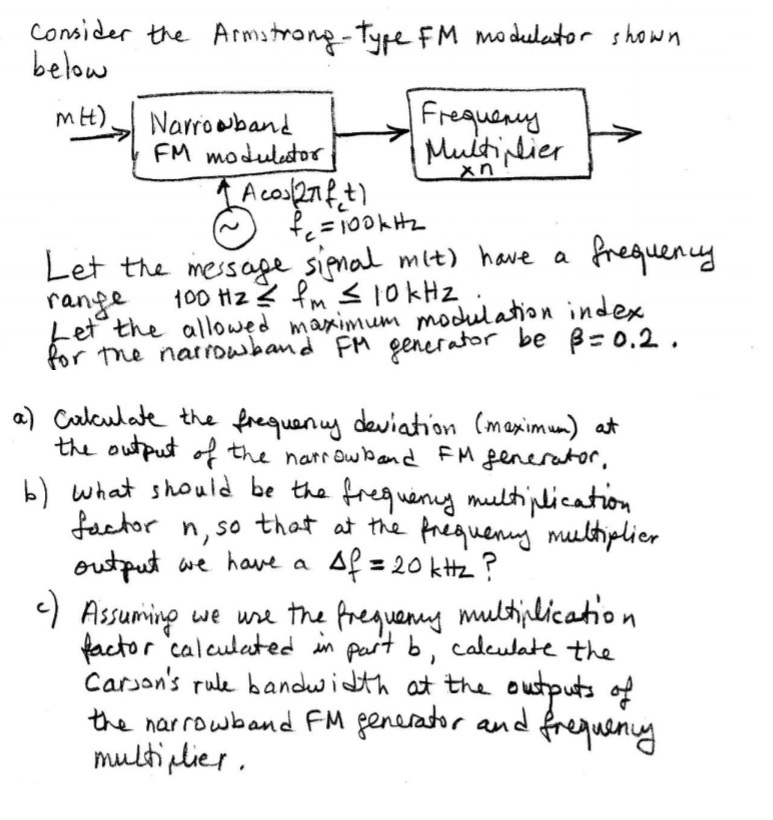 Consider the Armstrong-Type FM modulator shown
below
m(t)
Narrowband
FM modulator
Frequency
Multiplier
xn
A cos(2πf_c t)
~
f_c = 100 kHz
Let the message signal m(t) have a frequency
range 100 Hz ≤ f_m ≤ 10 kHz.
Let the allowed maximum modulation index
for the narrowband FM generator be β = 0.2.
a) Calculate the frequency deviation (maximum) at
the output of the narrowband FM generator.
b) What should be the frequency multiplication
factor n, so that at the frequency multiplier
output we have a Δf = 20 kHz?
c) Assuming we use the frequency multiplication
factor calculated in part b, calculate the
Carson's rule bandwidth at the outputs of
the narrowband FM generator and frequency
multiplier.